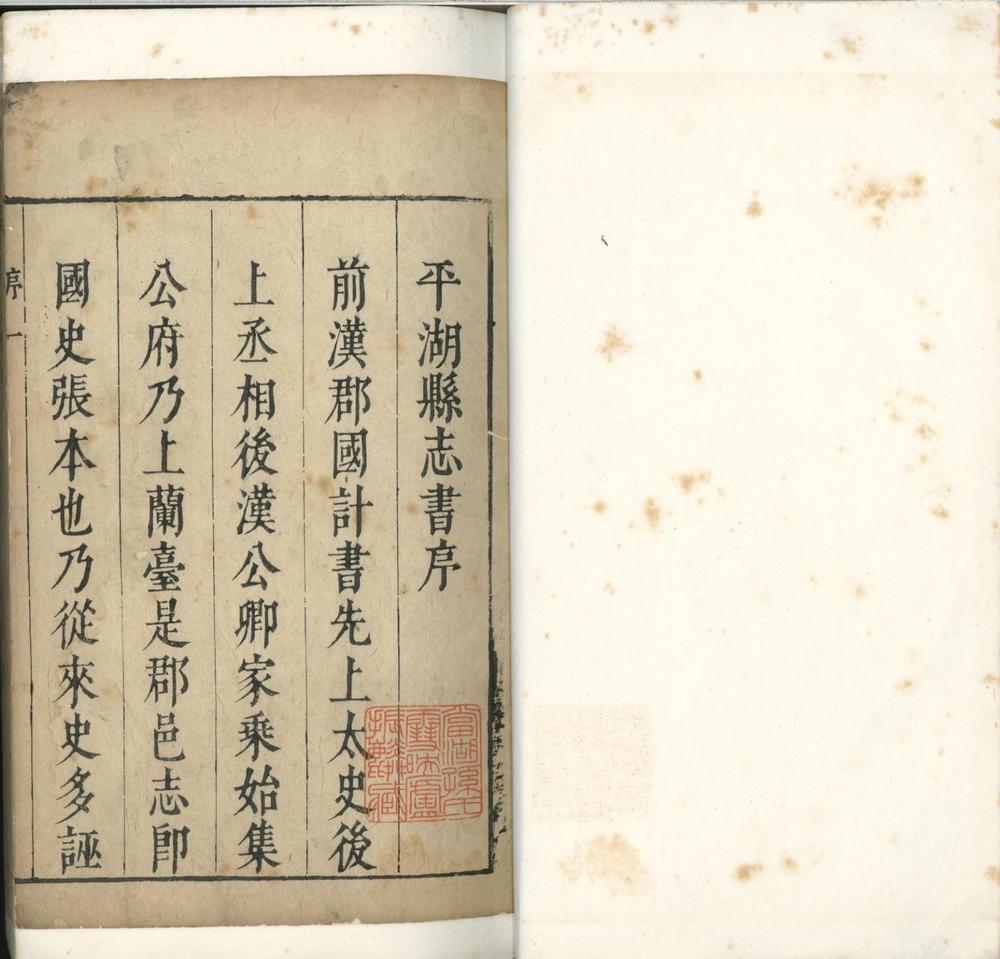 平湖縣志書序
前漢郡國計書先上太史後
上丞相後漢公卿家乘始集
公府乃上蘭臺是郡邑志卽
國史張本也乃從來史多誣
序一
當湖孫氏
雪映廬
振麟藏